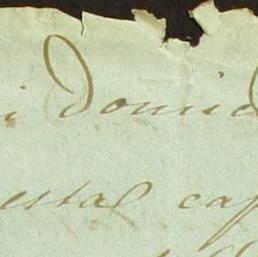 i domic
estal cap